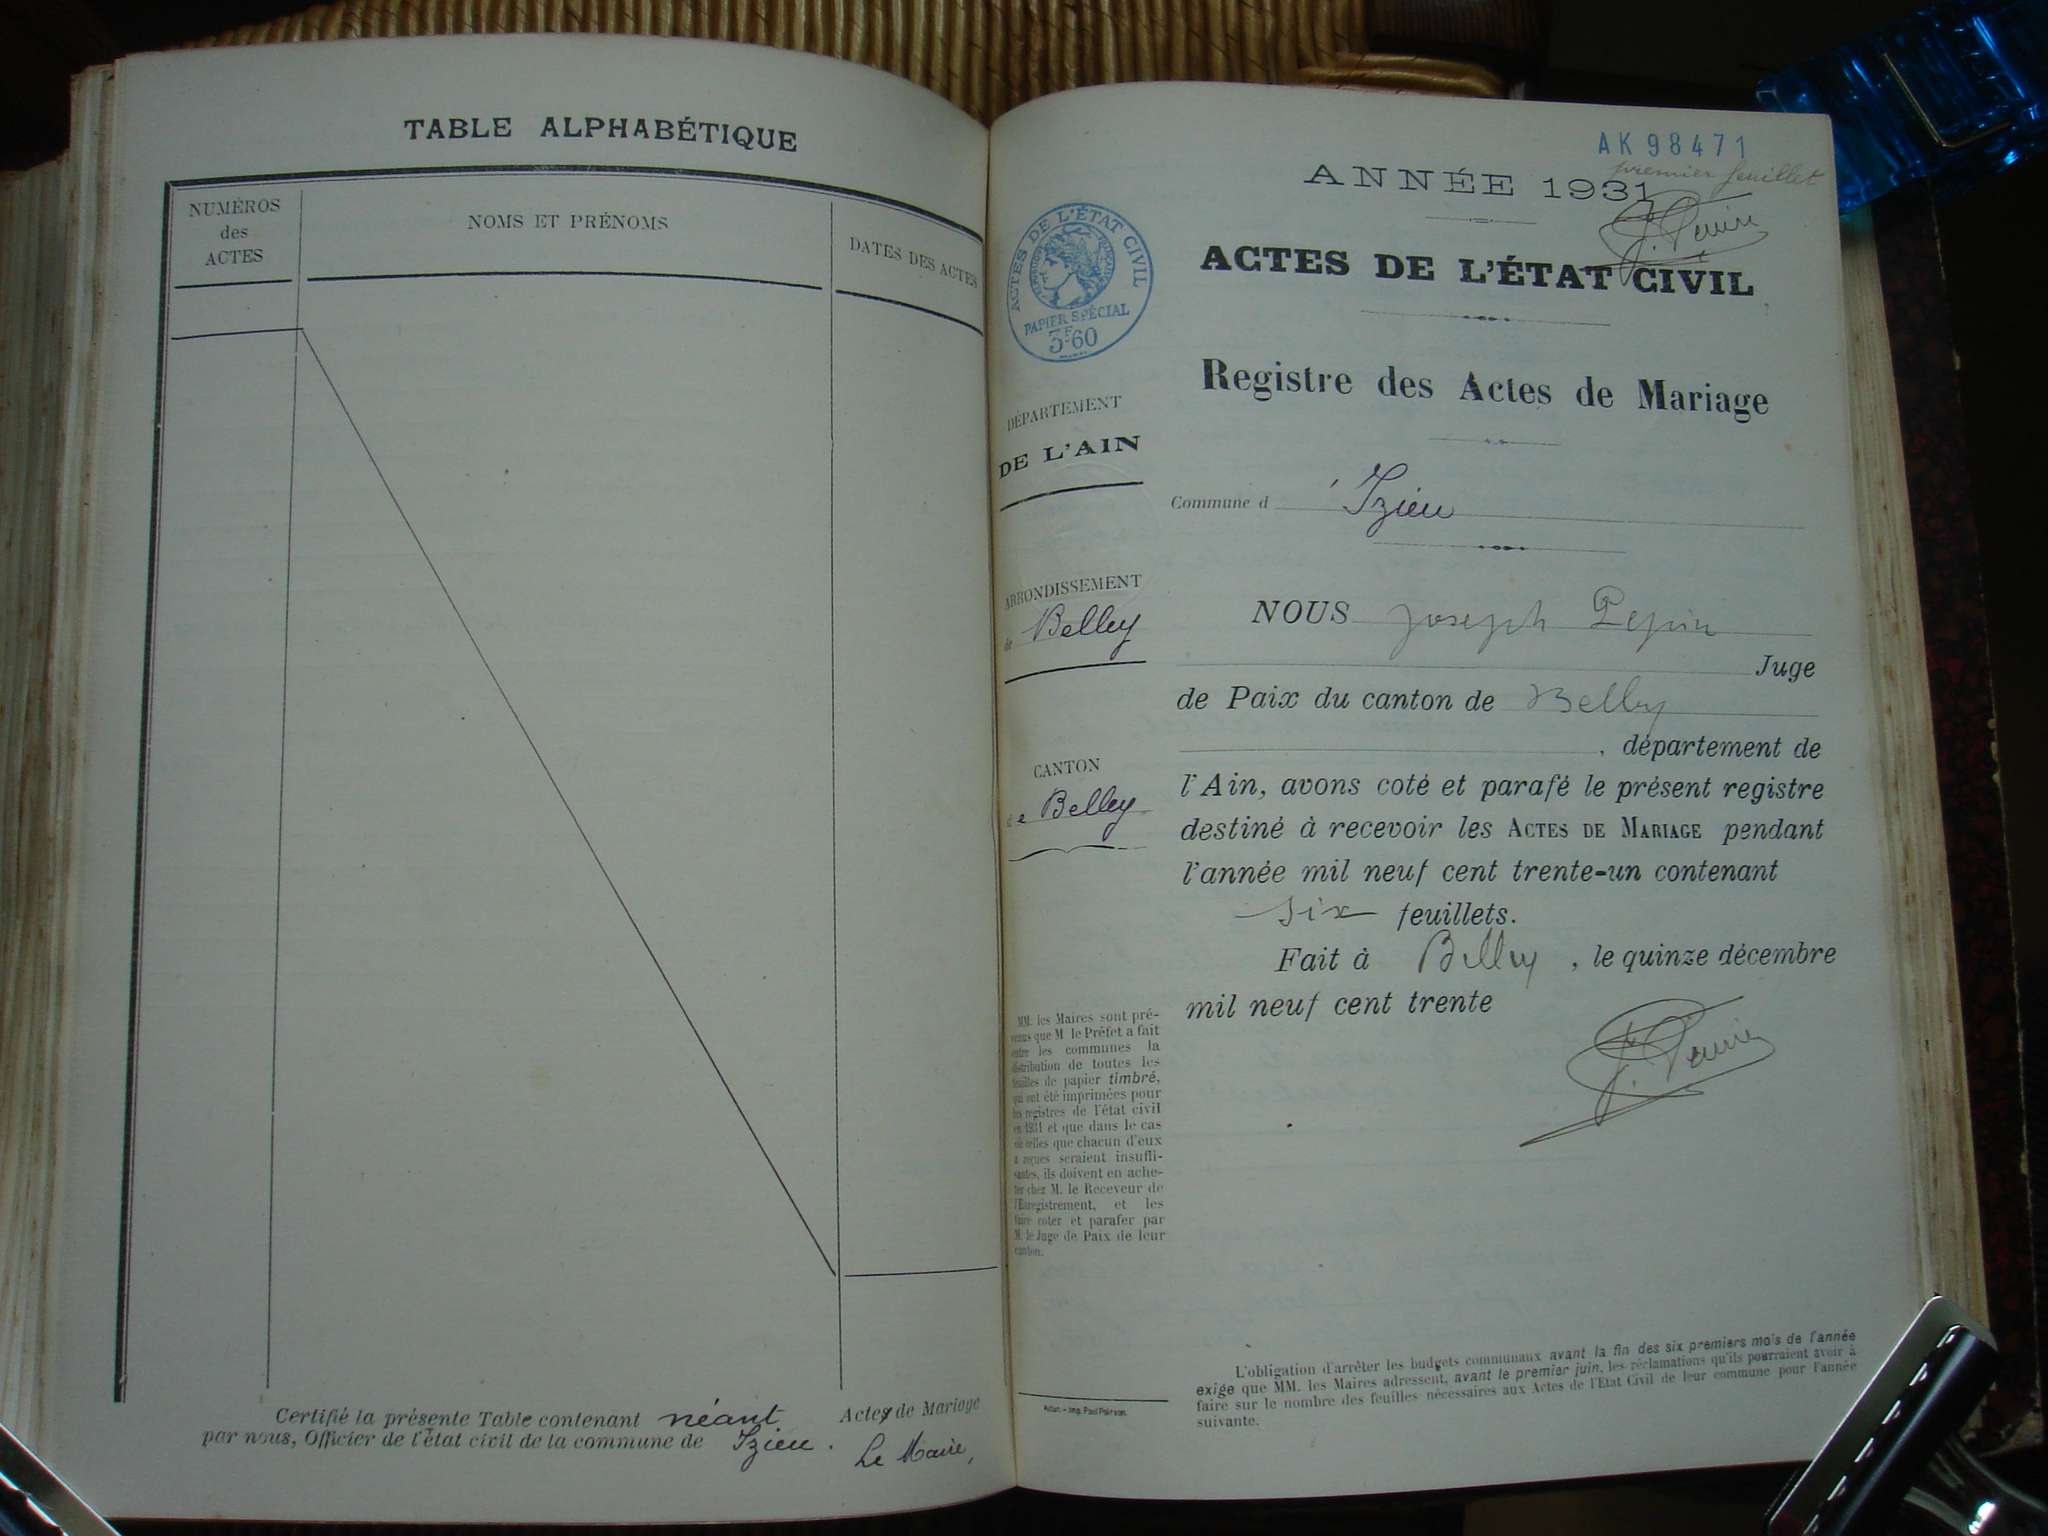 TABLE ALPHABÉTIQUE
NUMÉROS
des
ACTES
NOMS ET PRÉNOMS
DATES DES ACTES
Certifié la présente Table contenant néant Actes de Mariage
par nous, Officier de l'état civil de la commune de Izieu.
Le Maire,
AK 98471
premier feuillet
ANNÉE 1931
ACTES DE L'ÉTAT CIVIL
PAPIER SPÉCIAL
3F60
ACTES DE L'ÉTAT CIVIL
Registre des Actes de Mariage
DÉPARTEMENT
DE L'AIN
Commune d'Izieu
ARRONDISSEMENT
de Belley
CANTON
de Belley
NOUS Joseph Pepin
Juge
de Paix du canton de Belley
, département de
l'Ain, avons coté et parafé le présent registre
destiné à recevoir les ACTES DE MARIAGE pendant
l'année mil neuf cent trente-un contenant
six feuillets.
Fait à Belley, le quinze décembre
mil neuf cent trente
MM. les Maires sont pré-
venus que M le Préfet a fait
entre les communes la
distribution de toutes les
feuilles de papier timbré,
qui ont été imprimées pour
les registres de l'état civil
en 1931 et que dans le cas
où celles que chacun d'eux
a reçues seraient insuffi-
santes, ils doivent en ache-
ter chez M. le Receveur de
l'Enregistrement, et les
faire coter et parafer par
M. le Juge de Paix de leur
canton.
L'obligation d'arrêter les budgets communaux avant la fin des six premiers mois de l'année
exige que MM. les Maires adressent, avant le premier juin, les réclamations qu'ils pourraient avoir à
faire sur le nombre des feuilles nécessaires aux Actes de l'Etat Civil de leur commune pour l'année
suivante.